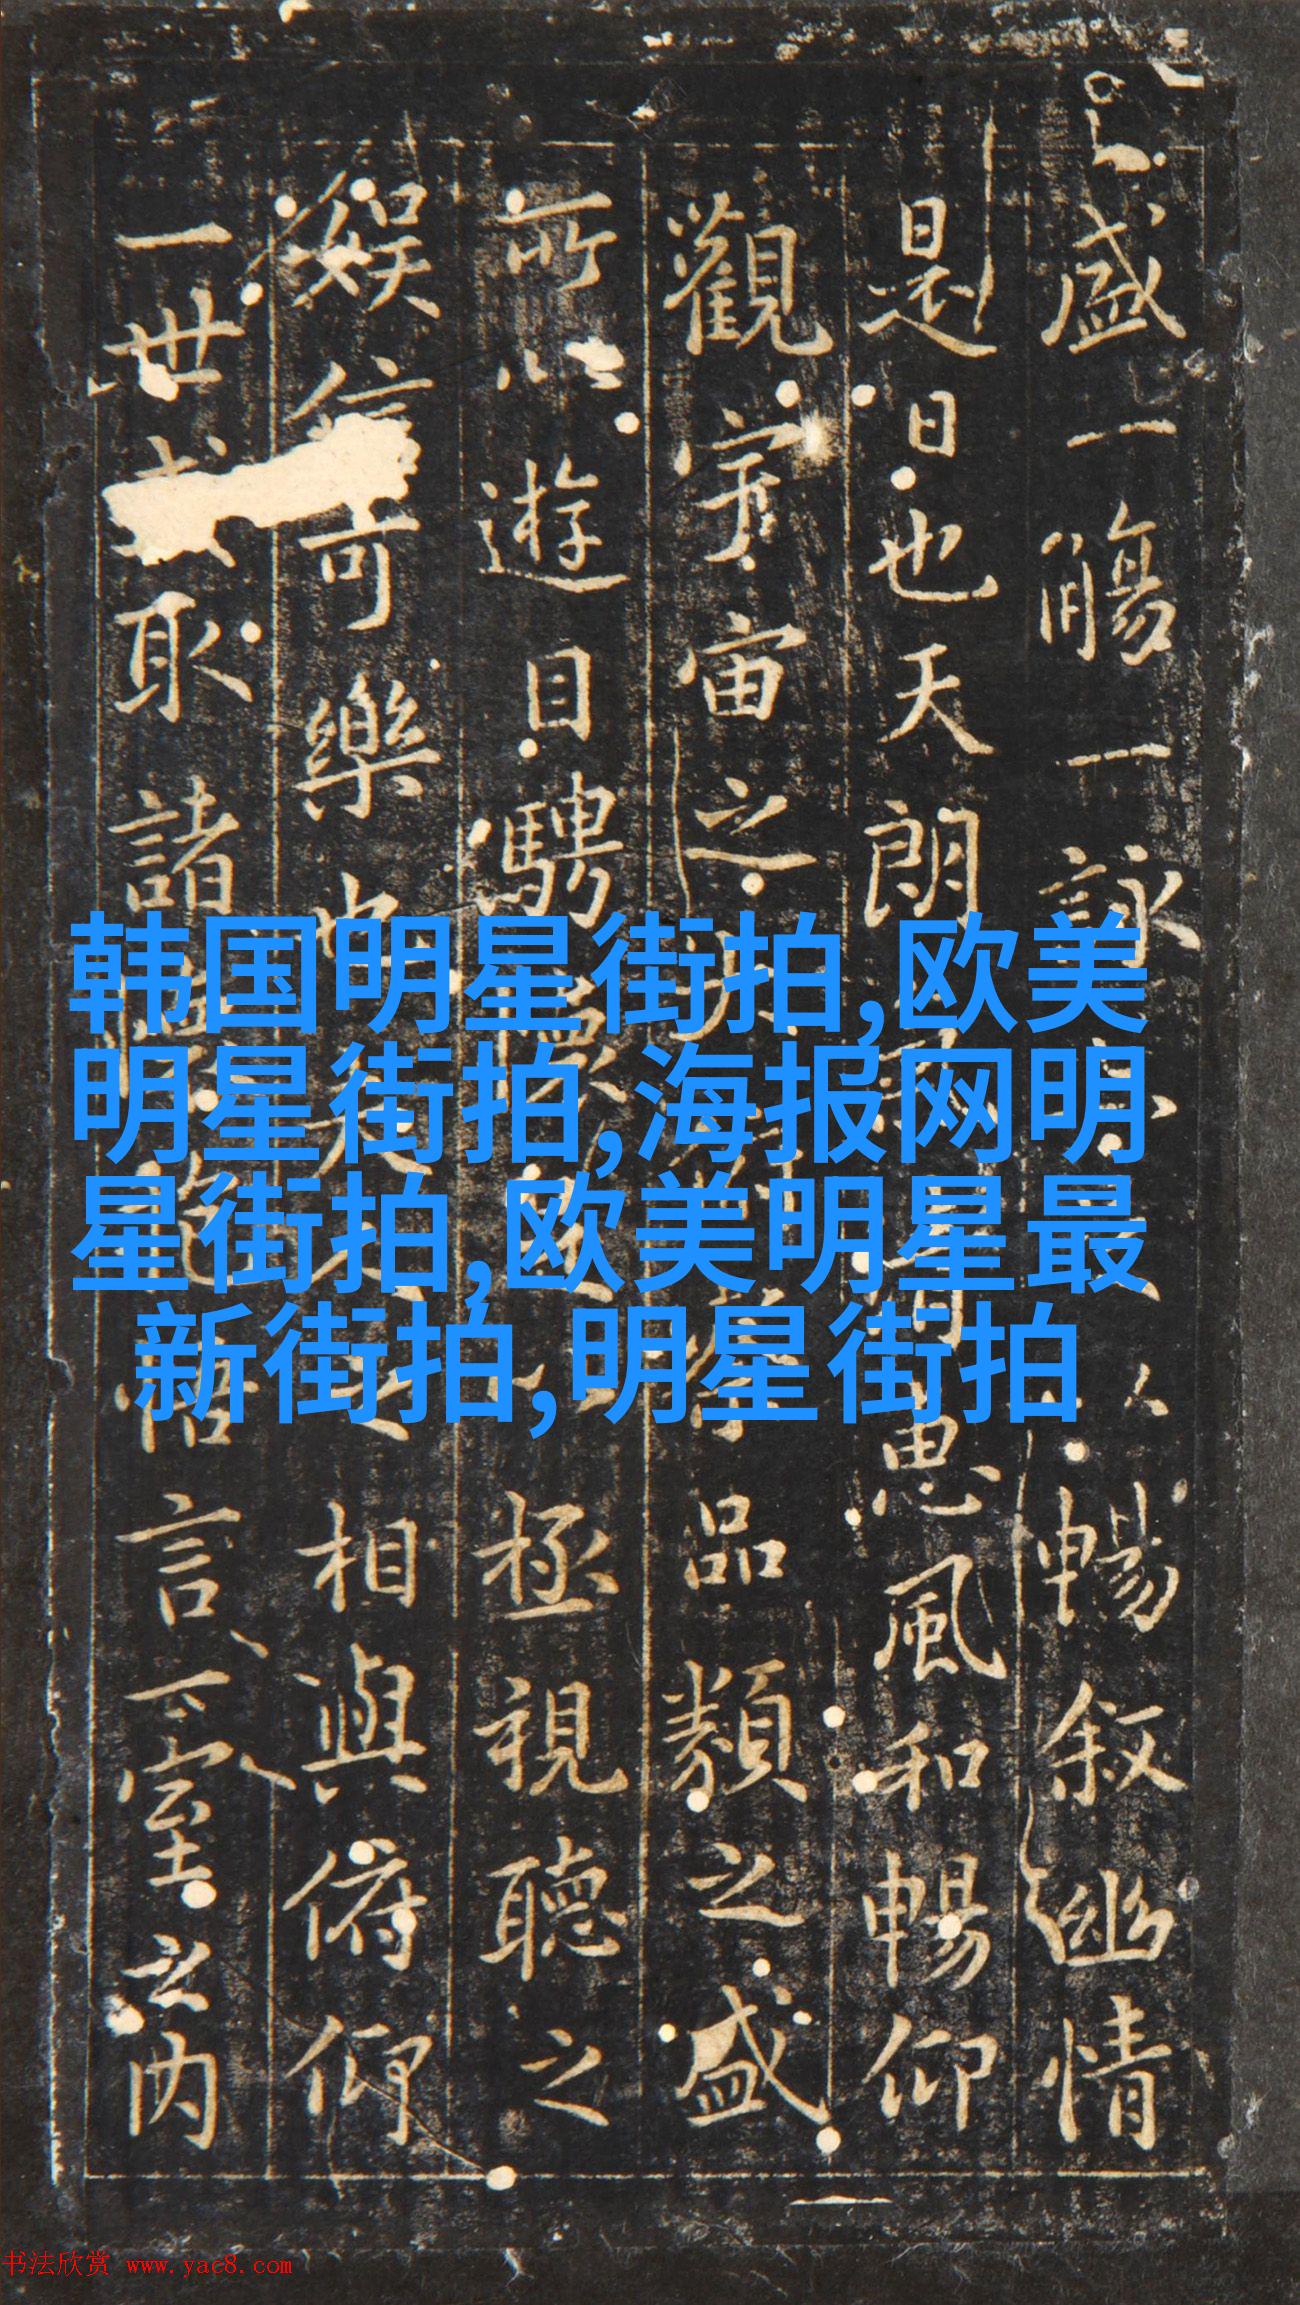 盛一觴一詠以暢叙幽情
是日也天朗清惠風和暢仰
觀宇宙之察品類之盛
所以遊目騁懷極視聽之
娱信可樂也夫相與俯仰
一世或取諸懷抱悟言一室之内
韩国明星街拍,欧美
明星街拍,海报网明
星街拍,欧美明星最
新街拍,明星街拍
书法欣赏 www.yac8.com